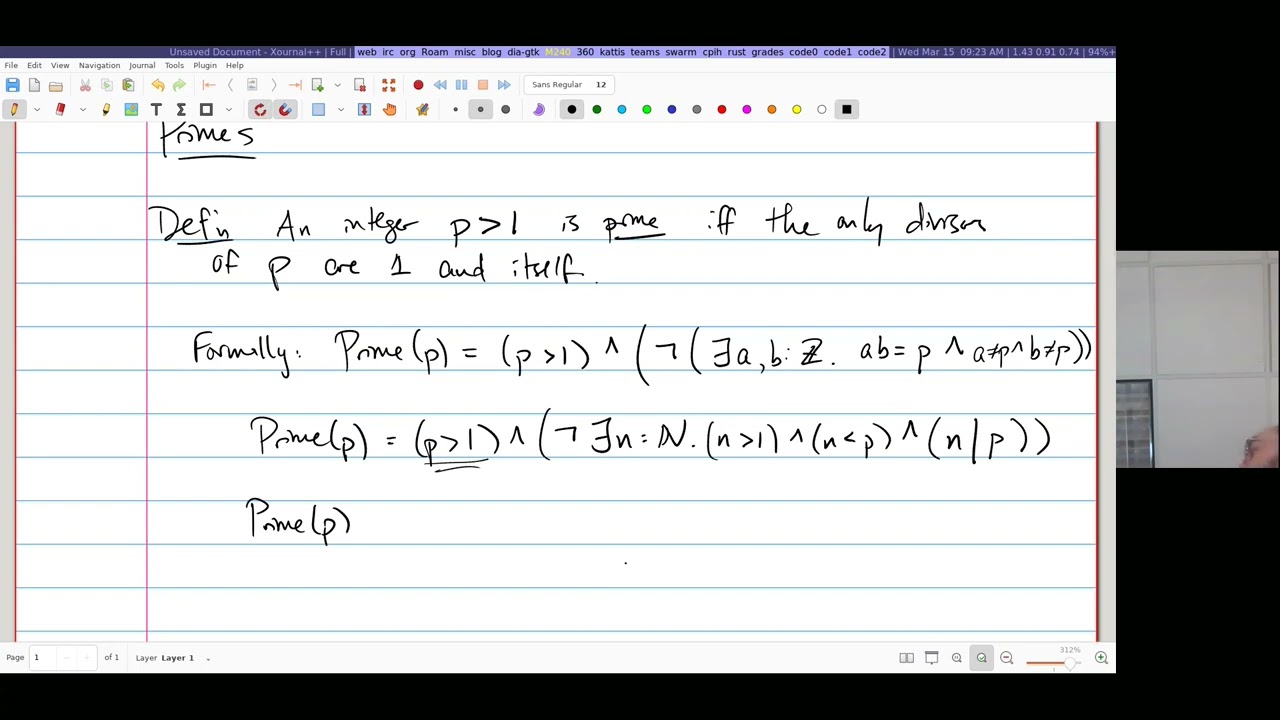 Unsaved Document - Xournal++ | Full | web irc org Roam misc blog dia-gtk M240 360 kattis teams swarm cpih rust grades code0 code1 code2 | Wed Mar 15 09:23 AM | 1.43 0.91 0.74 | 94%+
File Edit View Navigation Journal Tools Plugin Help
Sans Regular 12
Primes
Defn An integer p>1 is prime iff the only divisors
of p are 1 and itself.
Formally: Prime(p) = (p>1) ∧ (¬(∃a,b:ℤ. ab=p ∧ a≠p∧b≠p))
Prime(p) = (p>1) ∧ (¬∃n:ℕ.(n>1)∧(n<p)∧(n|p))
Prime(p)
Page 1 of 1 Layer Layer 1 312%